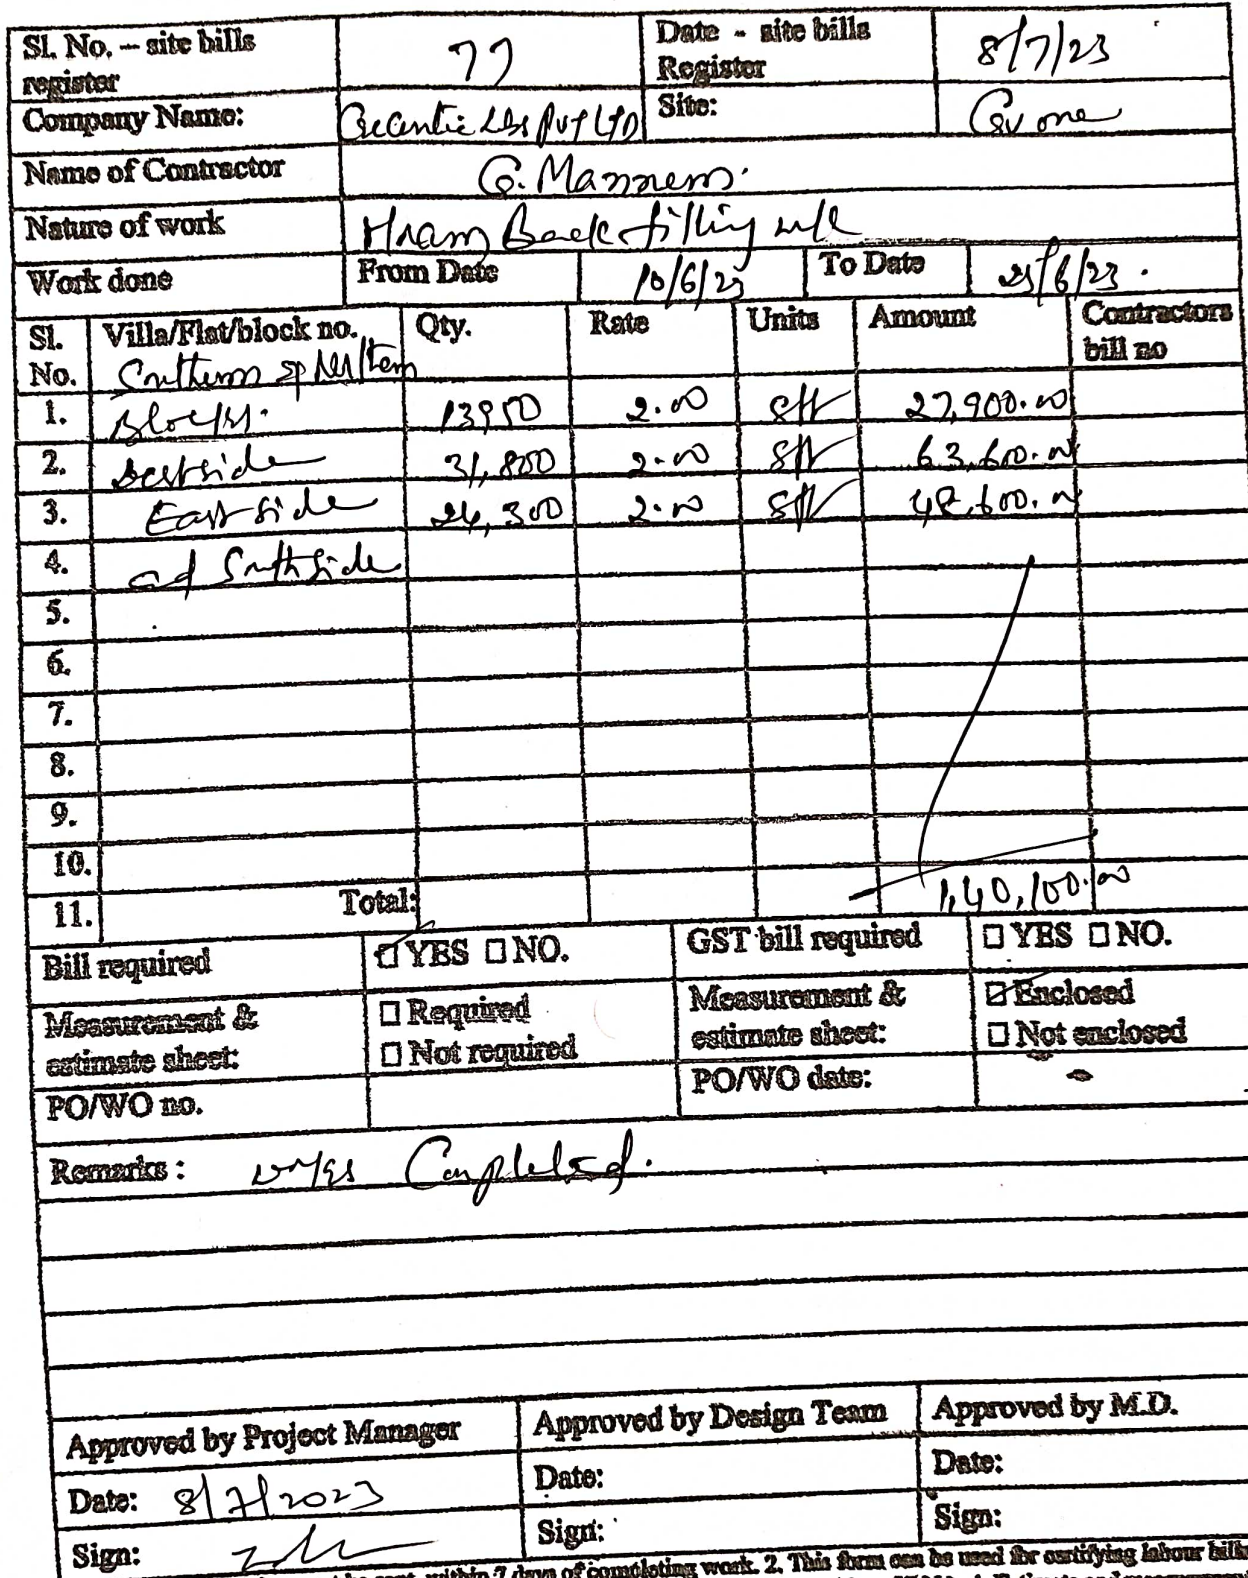 Sl. No. – site bills register 77 Date - site bills Register 8/7/23
Company Name: Pvt LTD Site: Gv one
Name of Contractor G. Mannem.
Nature of work Back filling
Work done From Date 10/6/23 To Date /6/23.
Sl. No. Villa/Flat/block no. Qty. Rate Units Amount Contractors bill no
1. 13950 2.00 sft 27,900.00
2. 31,800 2.00 sft 63,600.00
3. East side 24,300 2.00 sft 48,600.00
4. South side
5.
6.
7.
8.
9.
10.
11. Total: 1,40,100.00
Bill required ☑ YES ☐ NO. GST bill required ☐ YES ☐ NO.
Measurement & estimate sheet: ☐ Required ☐ Not required Measurement & estimate sheet: ☑ Enclosed ☐ Not enclosed
PO/WO no. PO/WO date:
Remarks : Completed.
Approved by Project Manager Approved by Design Team Approved by M.D.
Date: 8/7/2023 Date: Date:
Sign: Sign: Sign:
within 7 days of completing work. 2. This form can be used for certifying labour bills